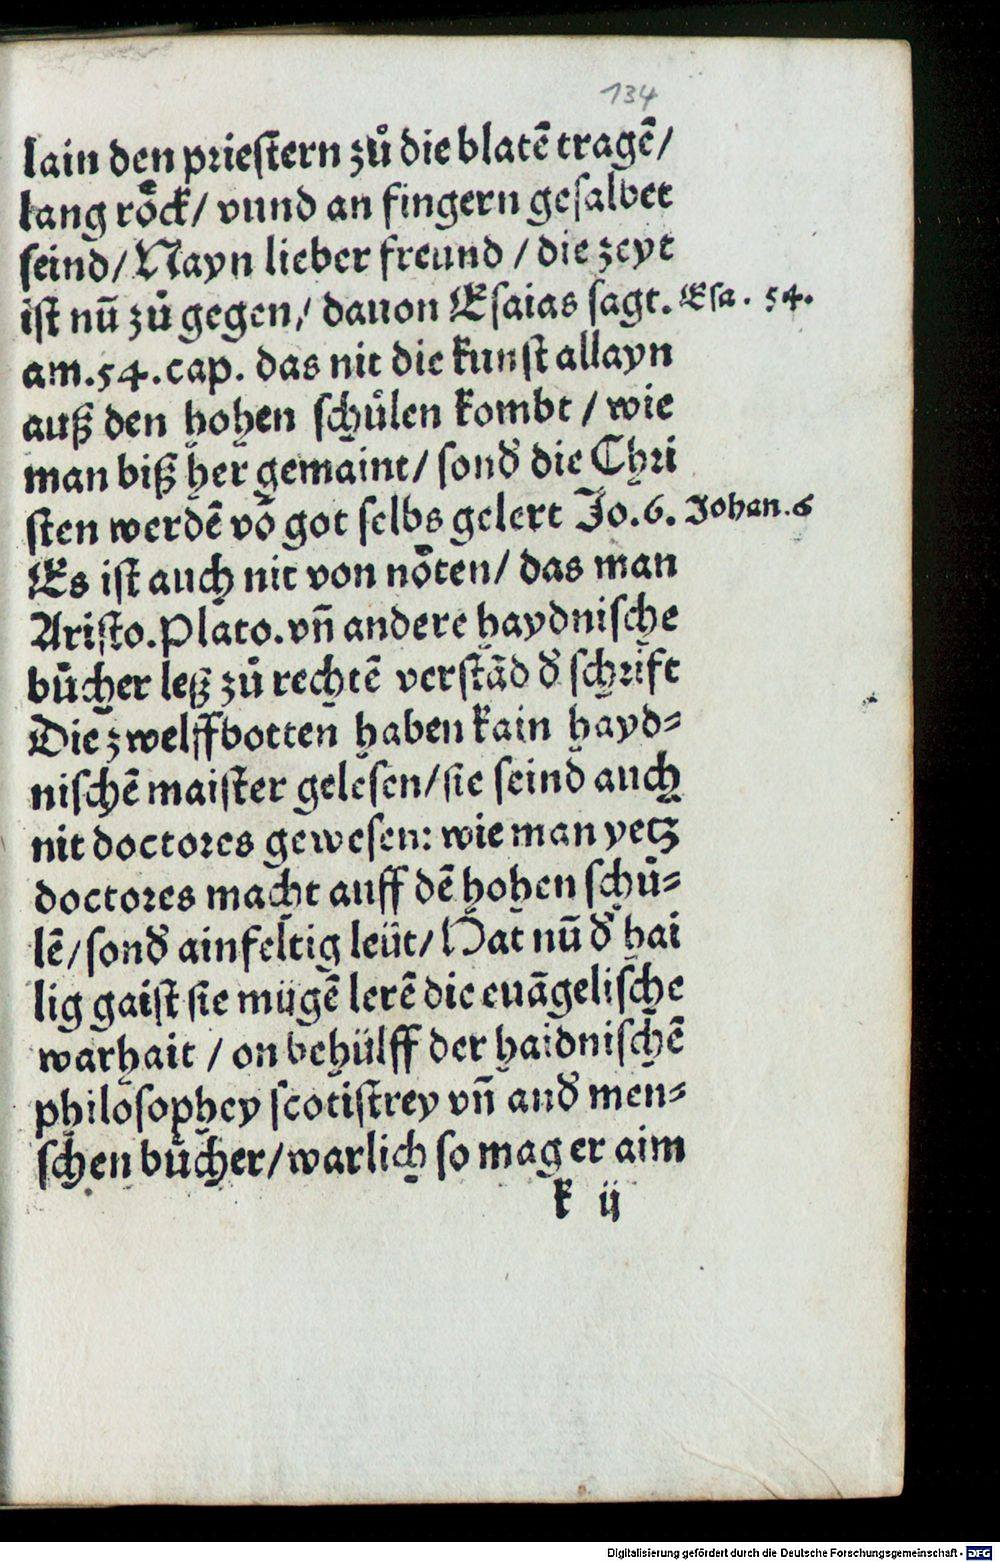 134
lain den priestern zů die blatē tragē/
lang roͤck/ vnnd an fingern gesalbet
seind/ Nayn lieber freund / die zeyt
ist nū zů gegen/ dauon Esaias sagt. Esa. 54.
am.54.cap. das nit die kunst allayn
auß den hohen schůlen kombt / wie
man biß her gemaint/ sonđ die Chri
sten werdē vō got selbs gelert Jo.6. Johan.6
Es ist auch nit von noͤten/ das man
Aristo.Plato.vn̄ andere haydnische
bücher leß zů rechtē verstād đ schrift
Die zwelffbotten haben kain hayd⸗
nischē maister gelesen/sie seind auch
nit doctores gewesen: wie man yetz
doctores macht auff dē hohen schů⸗
lē/sonđ ainfeltig leüt/ Hat nū đ hai
lig gaist sie mügē lerē die euāgelische
warhait / on behülff der haidnischē
philosophey scotistrey vn̄ anđ men⸗
schen bücher/warlich so mag er aim
k ij
Digitalisierung gefördert durch die Deutsche Forschungsgemeinschaft - DFG